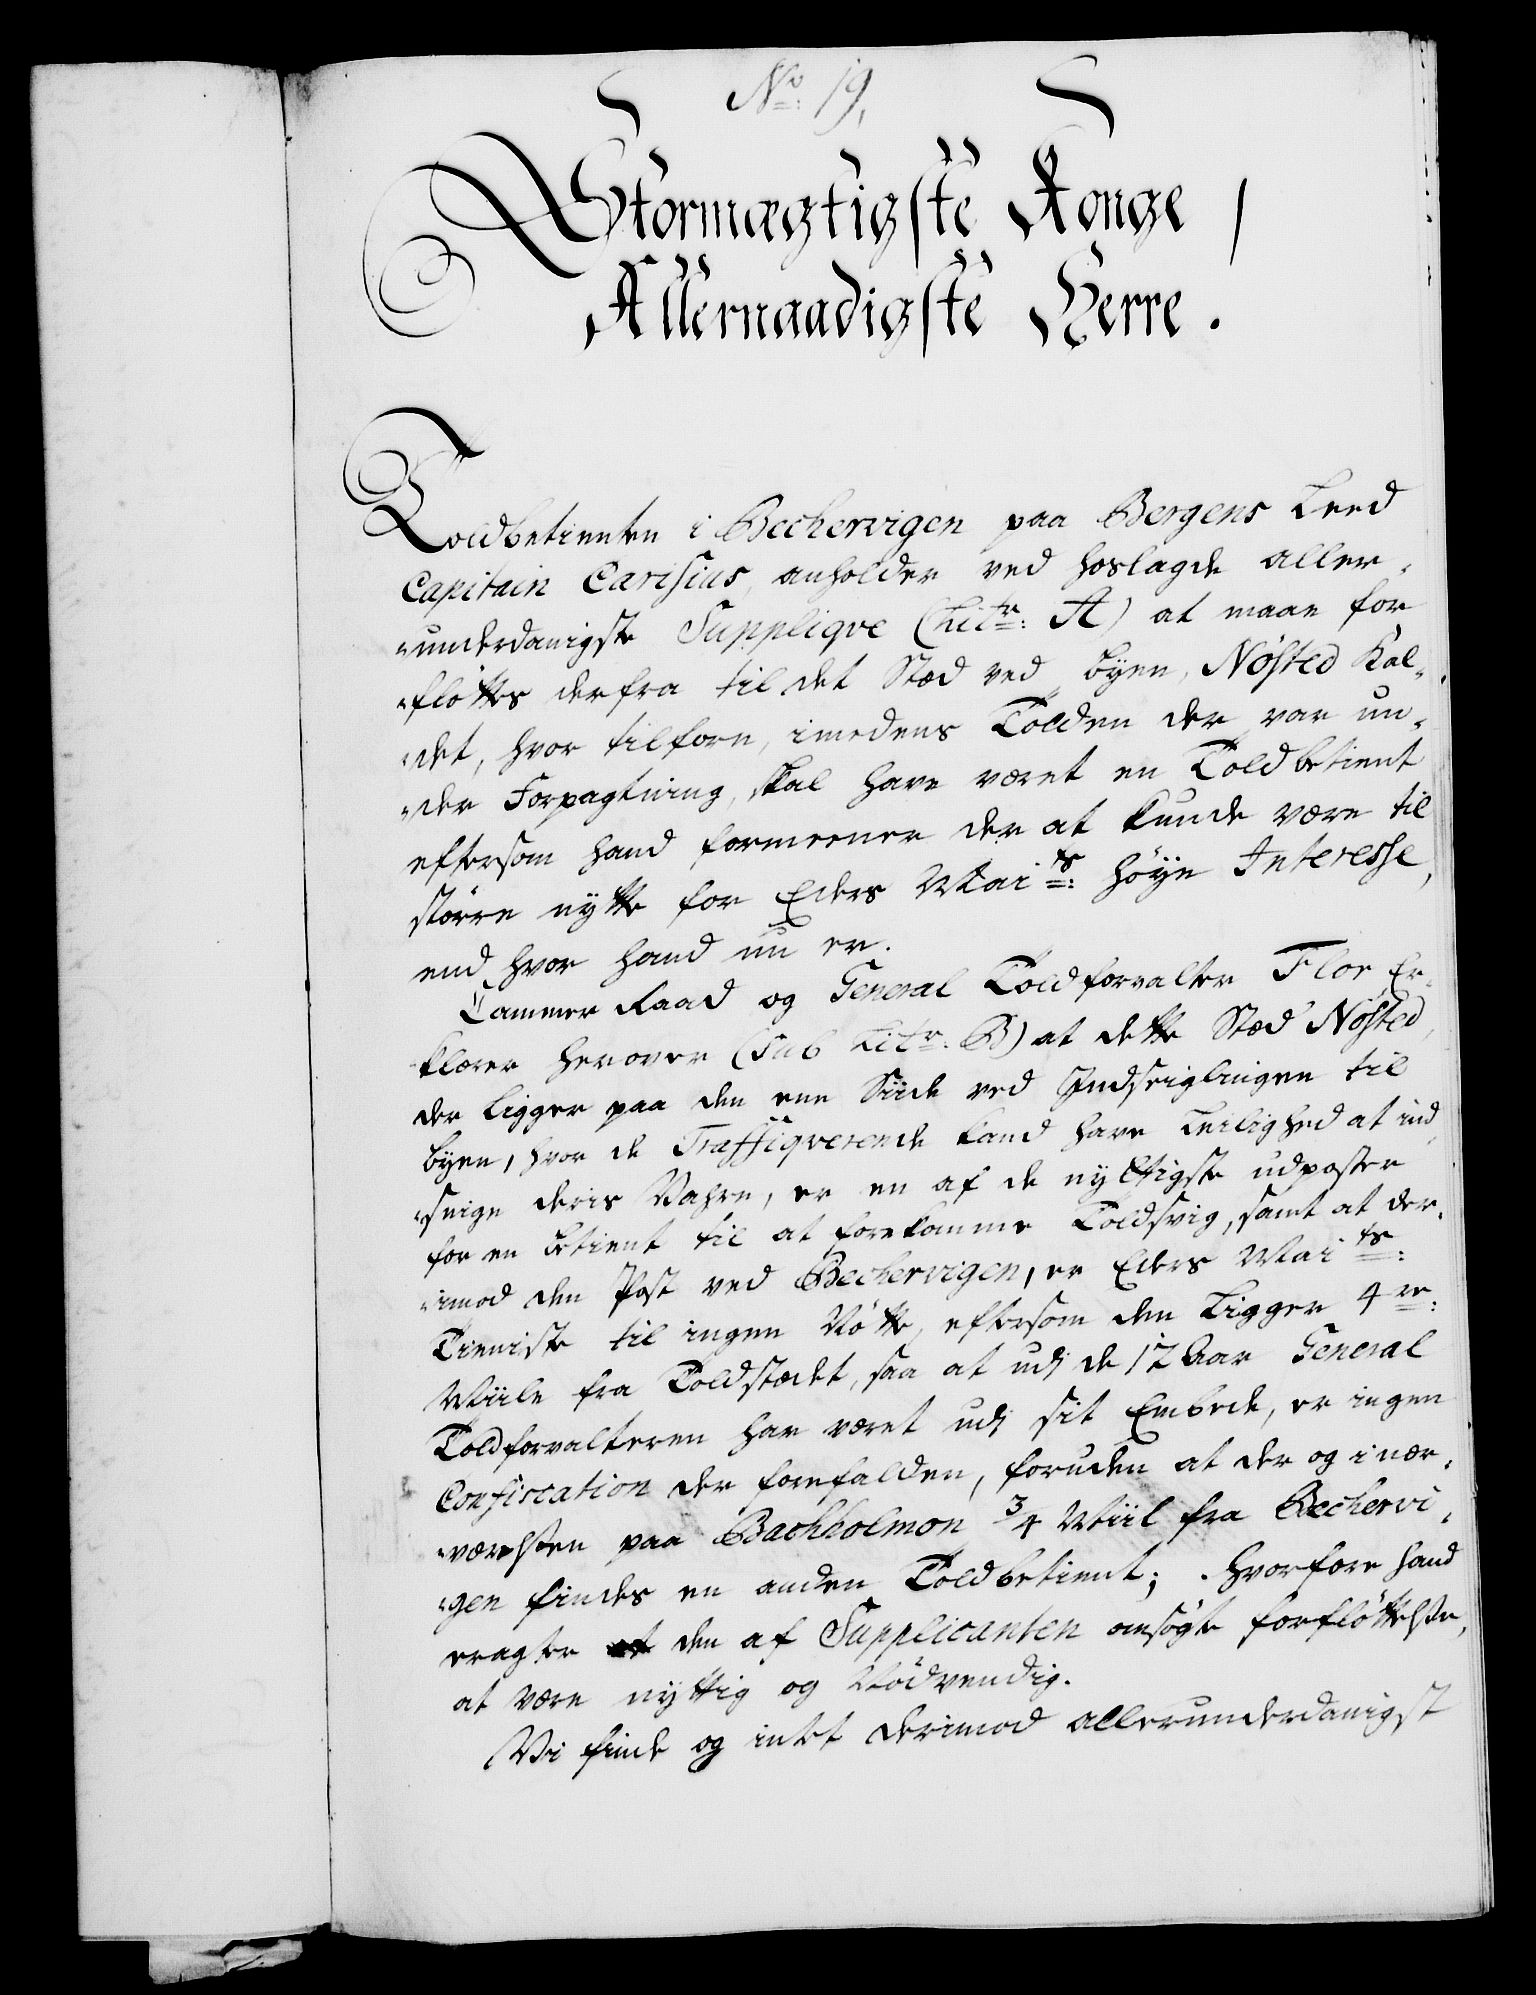 No: 19,
Stormægtigste Konge /
Allernaadigste Herre.
Toldbetienten i Bechervigen paa Bergens Leed
Capitain Carisius, anholder ved hoslagde aller-
underdanigste Supplique (Litr: A) at maae for
fløttes derfra til det Stæd ved Byen, Nøsted Kal-
det, hvor tilforn, imedens Tolden der var un-
der Forpagtning, skal have været en Toldbetient
eftersom hand formeener der at kunde være til
større nytte for Eders Maits: høye Interesse,
end hvor hand nu er.
Cammer Raad og General Toldforvalter Flor, Er-
klærer herover (sub Litr: B) at dette Stæd Nøsted,
der ligger paa den eene Siide ved Indseiglingen til
Byen, hvor de Traffiqverende kand have Leilighed at ind
snige deris Vahre, er en af de nyttigste udposter
for en betient til at forekomme Toldsvig, samt at der-
imod den Post ved Bechervigen, er Eders Maits:
Tieniste til ingen Nøtte, eftersom den ligger 4re:
Miile fra Toldstædet, saa at udj de 17 Aar General
Toldforvalteren har været udj sit Embede, er ingen
Confiscation der forefalden, foruden at der og i nær-
værelsen paa Bachholmon 3/4 Miil fra Bechervi-
gen findes en anden Toldbetient; hvorfore hand
eragter den af Supplicanten ansøgte forfløttelse,
at være nyttig og Nødvendig.
Vi finde og intet derimod allerunderdanigst